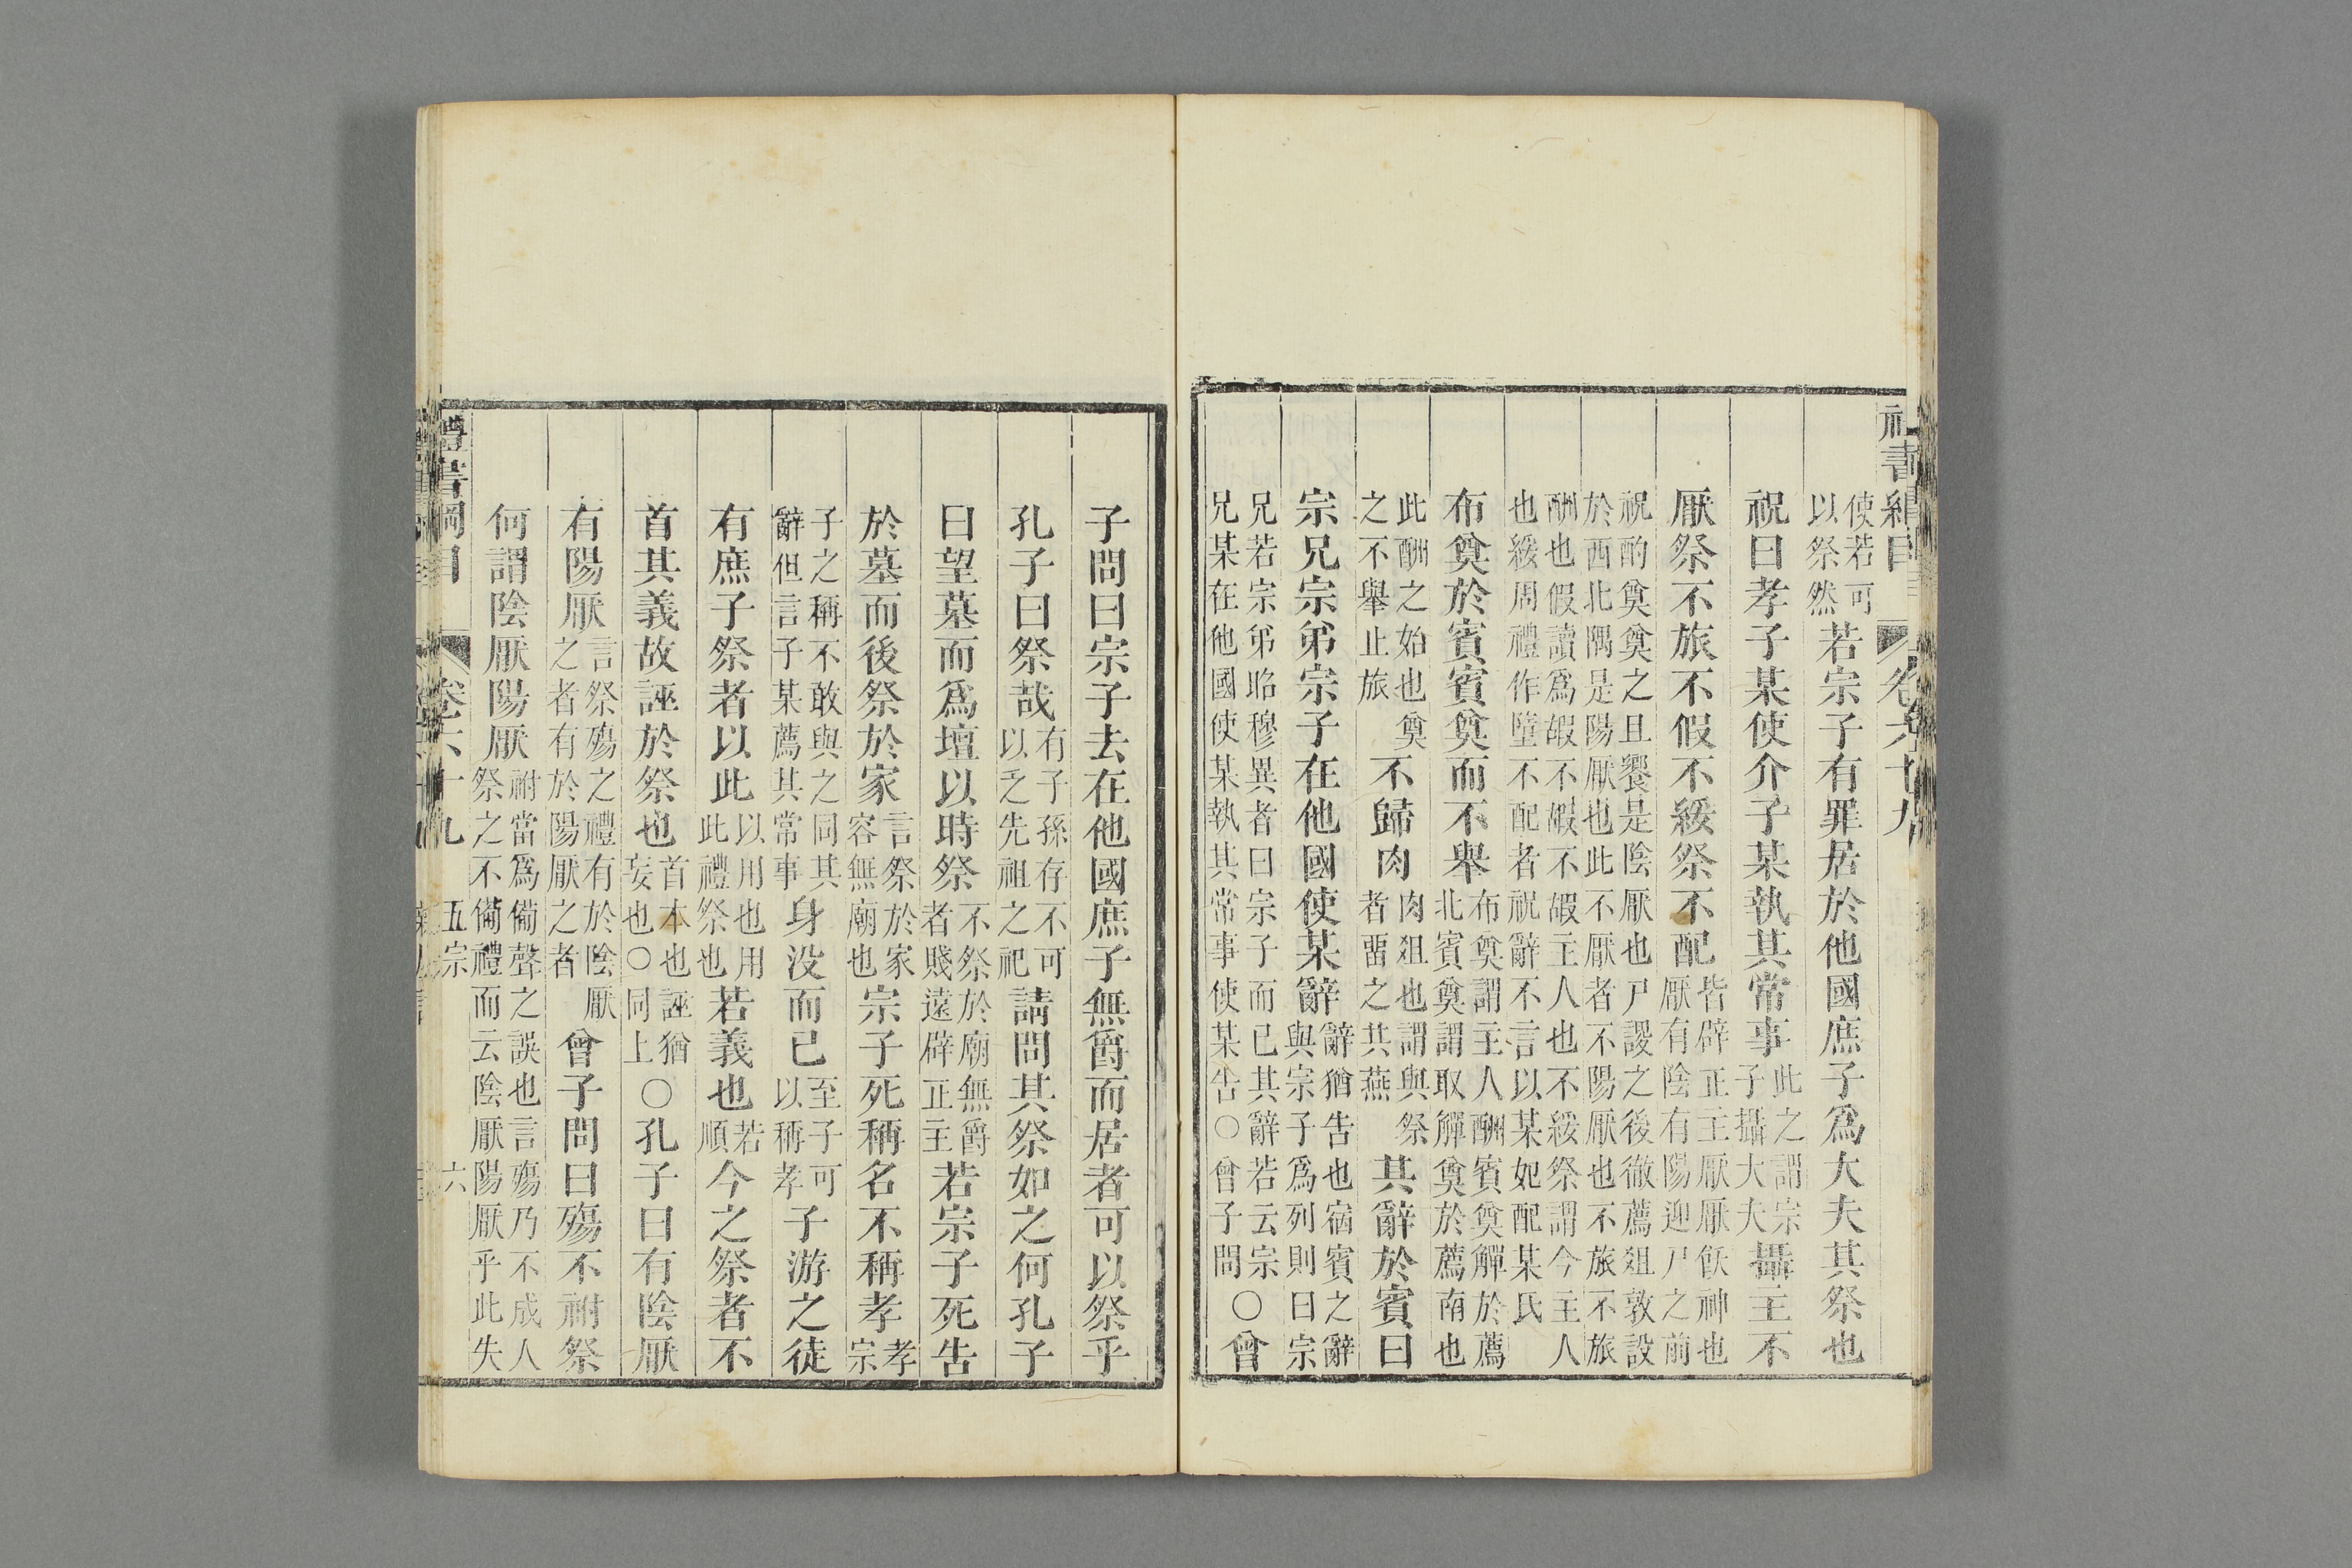 禮書綱目　卷六十九
使若可以祭然若宗子有罪居於他國庶子爲大夫其祭也
祝曰孝子某使介子某執其常事此之謂宗子攝大夫攝主不
厭祭不旅不假不綏祭不配皆辟正主厭厭飫神也厭有陰有陽迎尸之前
祝酌奠奠之且饗是陰厭也尸謖之後徹薦俎敦設於西北隅是陽厭也此不厭者不陽厭也不旅不旅
酬也假讀爲嘏不嘏不嘏主人也不綏祭謂今主人也綏周禮作墮不配者祝辭不言以某妃配某氏
布奠於賓賓奠而不舉布奠謂主人酬賓奠觶於薦北賓奠謂取觶奠於薦南也
此酬之始也奠之不舉止旅不歸肉肉俎也謂與祭者畱之共燕其辭於賓曰
宗兄宗弟宗子在他國使某辭辭猶告也宿賓之辭與宗子爲列則曰宗
兄若宗弟昭穆異者曰宗子而已其辭若云宗兄某在他國使某執其常事使某告○曾子問○曾
子問曰宗子去在他國庶子無爵而居者可以祭乎
孔子曰祭哉有子孫存不可以乏先祖之祀請問其祭如之何孔子
曰望墓而爲壇以時祭不祭於廟無爵者賤遠辟正主若宗子死告
於墓而後祭於家言祭於家容無廟也宗子死稱名不稱孝孝宗
子之稱不敢與之同其辭但言子某薦其常事身没而已至子可以稱孝子游之徒
有庶子祭者以此以用也用此禮祭也若義也若順今之祭者不
首其義故誣於祭也首本也誣猶妄也○同上○孔子曰有陰厭
有陽厭言祭殤之禮有於陰厭之者有於陽厭之者曾子問曰殤不祔祭
何謂陰厭陽厭祔當爲備聲之誤也言殤乃不成人祭之不備禮而云陰厭陽厭乎此失
禮書綱目　卷六十九　五宗　六